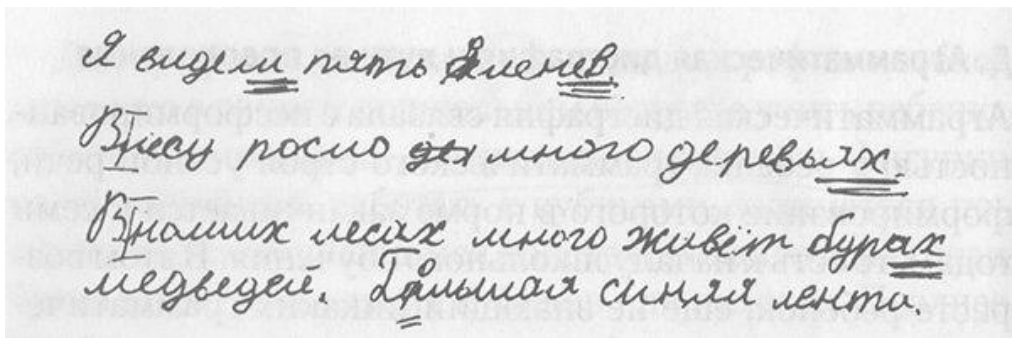 Я видели пять оленев.
Влесу посло много деревьях.
Внаших лесах много живёт бурах
медведей. Большая синяя лента.